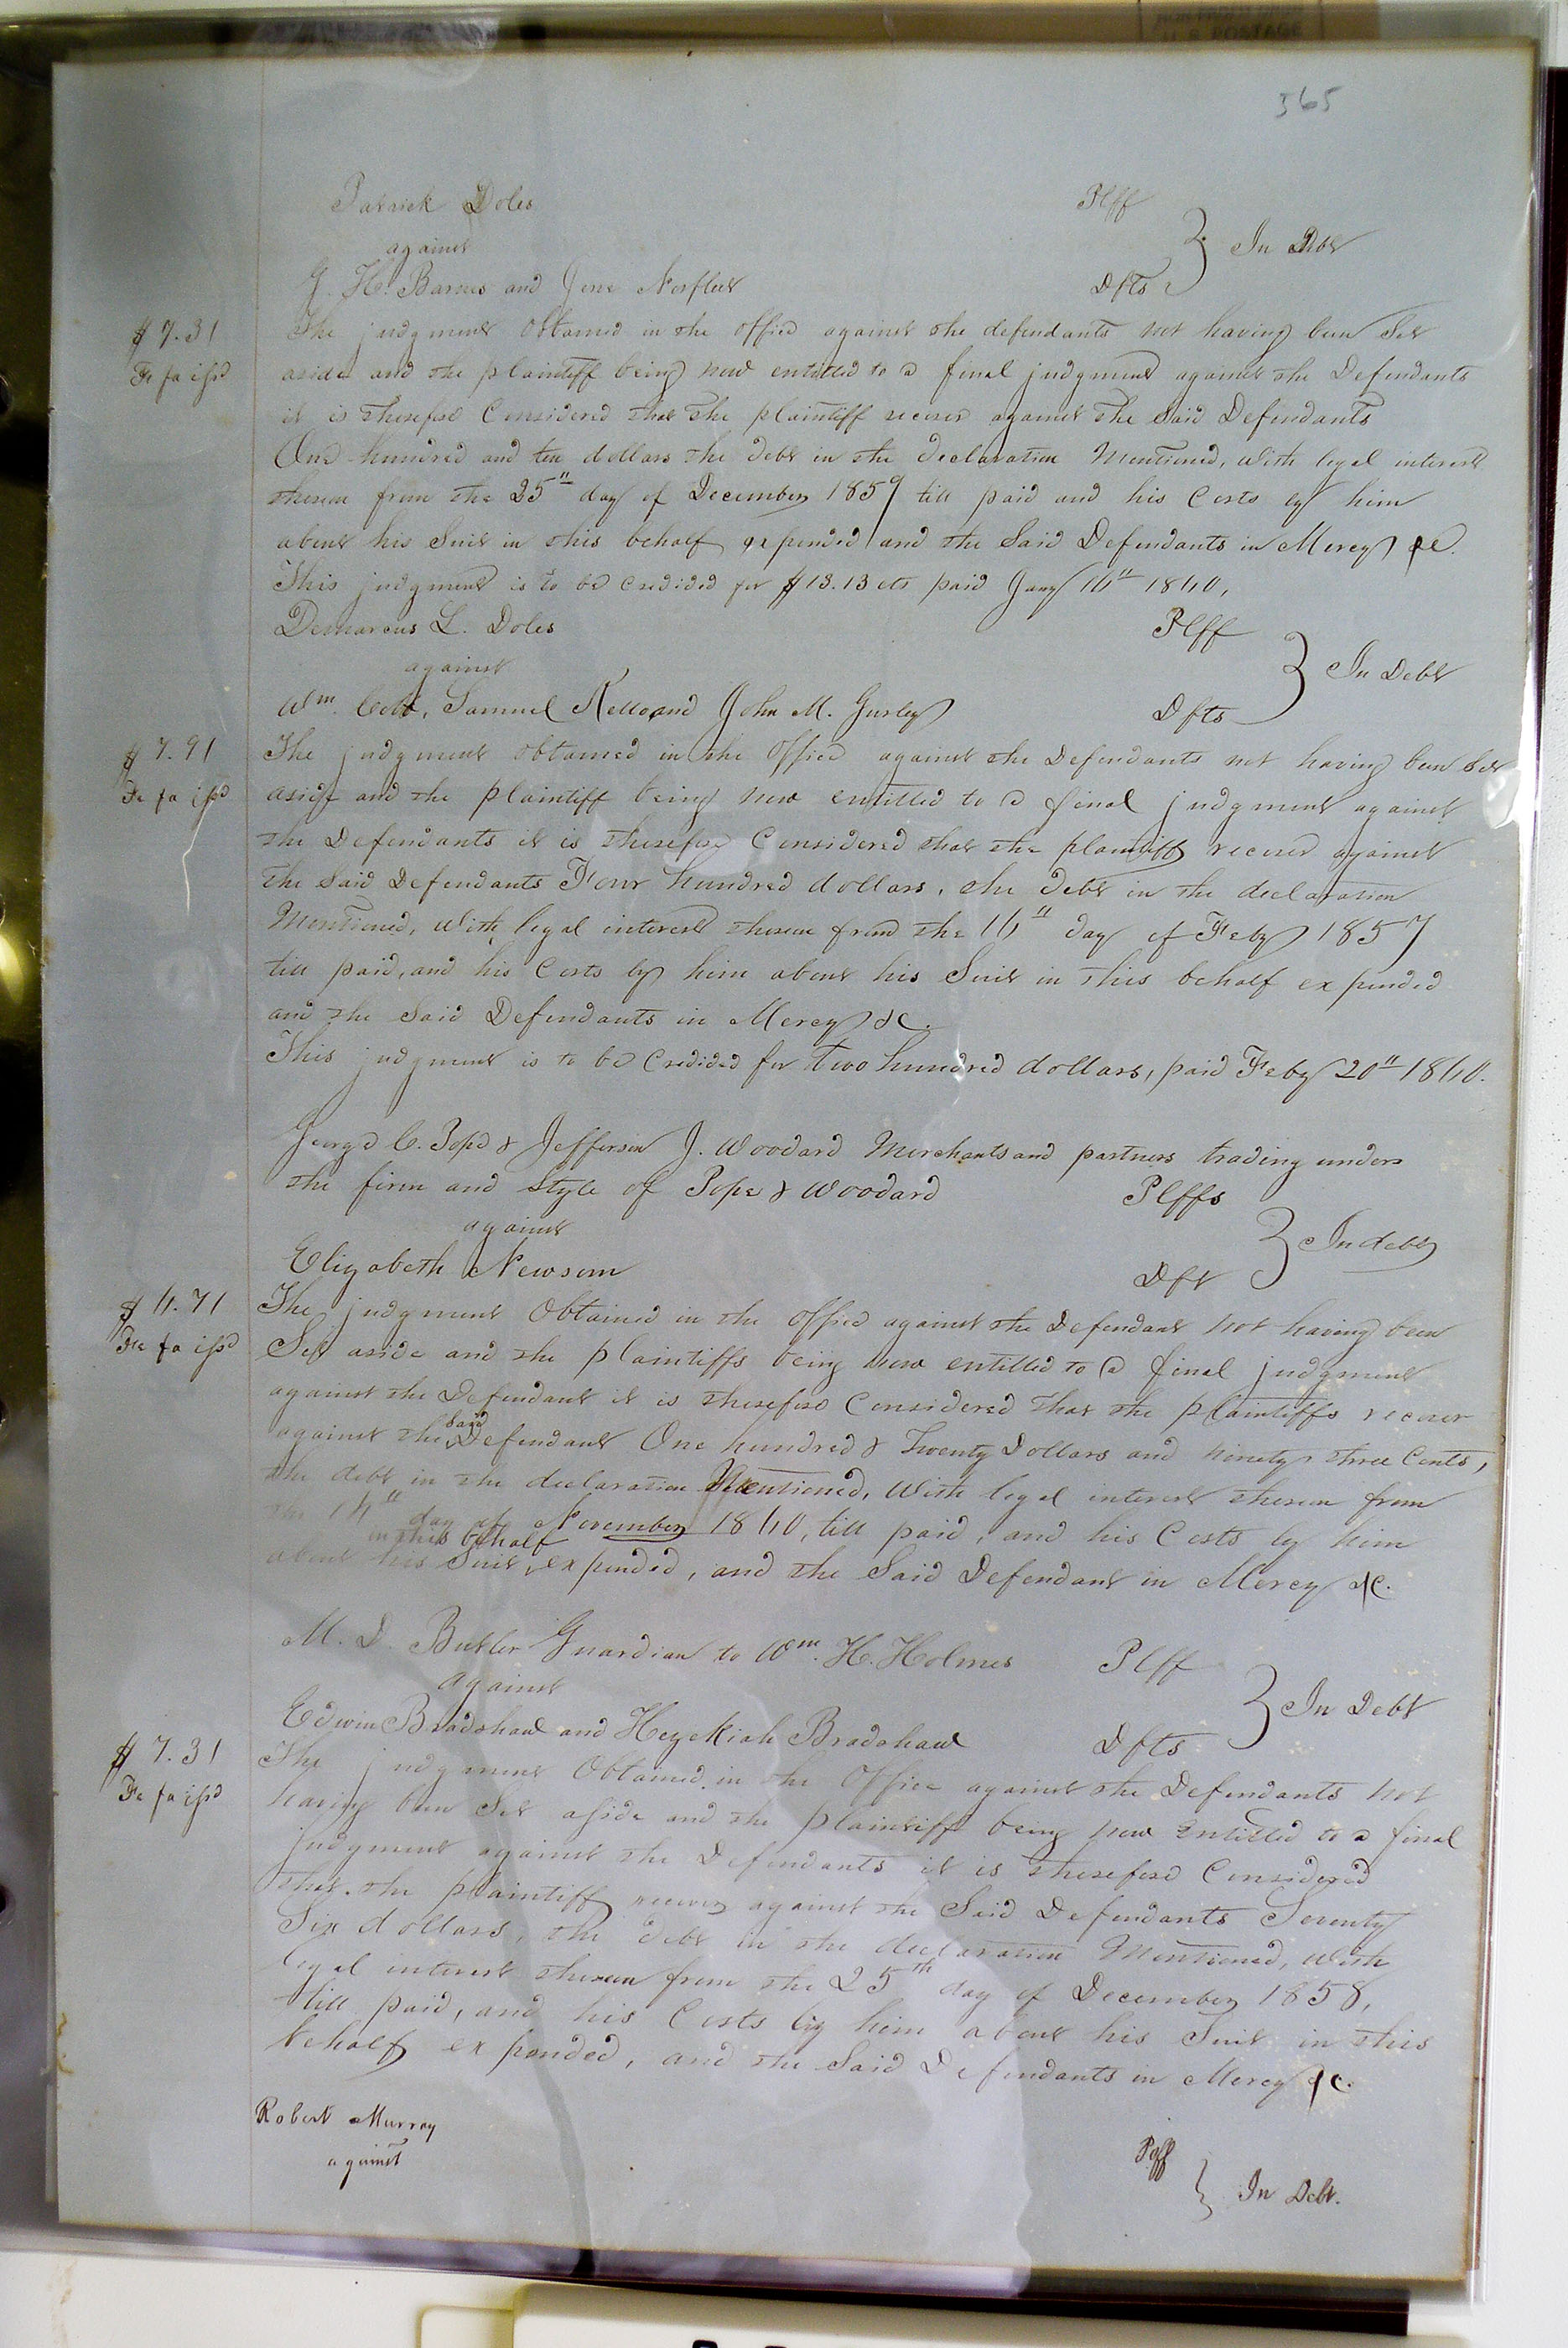 365
Patrick Doles Plff
against In Debt
J. H. Barnes and Jesse Norfleet Dfts
$7.31 The judgment obtained in the office against the defendants not having been Set
Fi fa issd aside and the plaintiff being now entitled to a final judgment against the Defendants
it is therefore Considered that the plaintiff recover against the Said Defendants
One hundred and ten dollars the debt in the declaration Mentioned, with legal interest
thereon from the 25th day of December 1859 till paid and his Costs by him
about his Suit in this behalf expended and the Said Defendants in Mercy &c.
This judgment is to be Credited for $13.13 cts paid Jany 16th 1860,
Demarcus L. Doles Plff
against In Debt
Wm. Cobb, Samuel Kello and John M. Gurley Dfts
$7.91 The judgment obtained in the Office against the Defendants not having been Set
Fi fa issd aside and the plaintiff being now entitled to a final judgment against
the Defendants it is therefore Considered that the plaintiff recover against
the Said Defendants Four hundred dollars, the debt in the declaration
Mentioned, with legal interest thereon from the 16th day of Feby 1857
till paid, and his Costs by him about his Suit in this behalf expended
and the Said Defendants in Mercy &c.
This judgment is to be Credited for Two hundred dollars, paid Feby 20th 1860.
George C. Pope & Jefferson J. Woodard Merchants and partners trading under
the firm and Style of Pope & Woodard Plffs
against In debt
Elizabeth Newsom Dft
$6.71 The judgment Obtained in the Office against the Defendant not having been
Fi fa issd Set aside and the plaintiffs being now entitled to a final judgment
against the Defendant it is therefore Considered that the plaintiffs recover
against the said Defendant One hundred & Twenty Dollars and ninety three Cents,
the debt in the declaration Mentioned, With legal interest thereon from
the 14th day of November 1860, till paid, and his Costs by him
about his Suit in this behalf expended, and the Said Defendant in Mercy &c.
M. D. Butler Guardian to Wm. H. Holmes Plff
against In Debt
Edwin Bradshaw and Hezekiah Bradshaw Dfts
$7.31 The judgment Obtained in the Office against the Defendants not
Fi fa issd having been Set aside and the plaintiff being now entitled to a final
judgment against the Defendants it is therefore Considered
that the plaintiff recover against the Said Defendants Seventy
Six dollars, the debt in the declaration Mentioned, with
legal interest thereon from the 25th day of December 1858,
till paid, and his Costs by him about his Suit in this
behalf expended, and the Said Defendants in Mercy &c.
Robert Murray Plff
against In Debt.